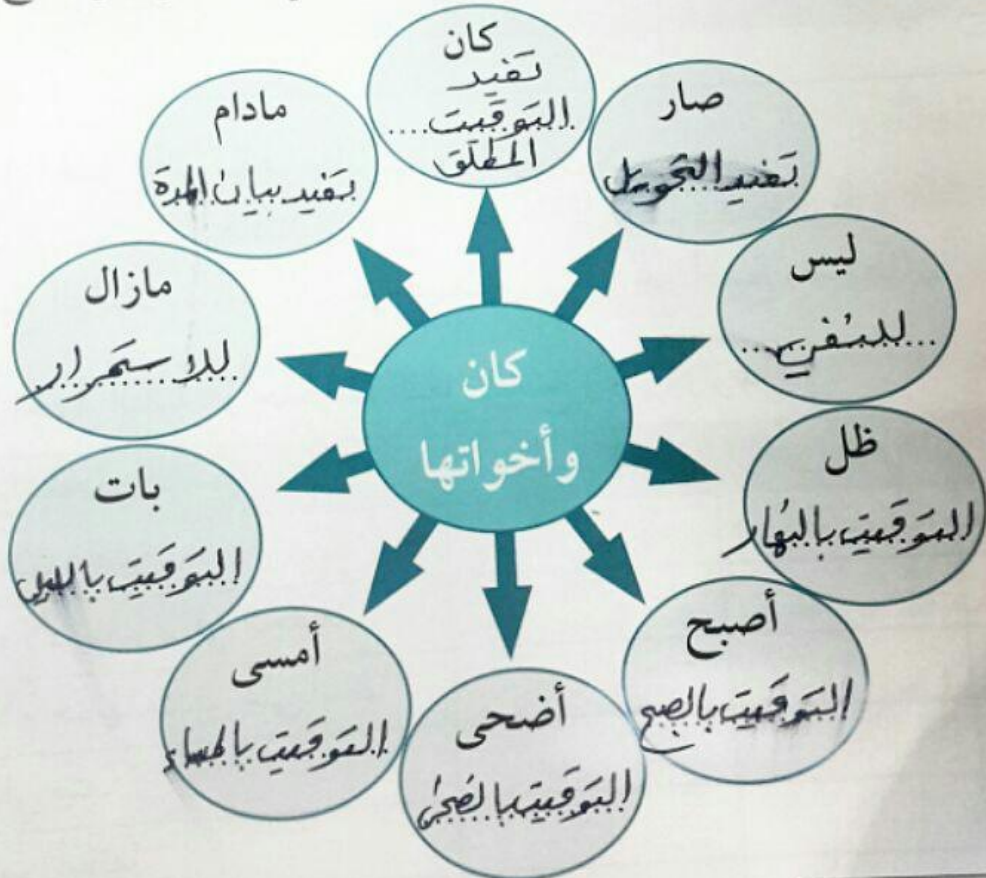 كان
تفيد
التوقيت....
المطلق
صار
تفيد التحويل
ليس
..للنفي..
ظل
التوقيت بالنهار
أصبح
التوقيت بالصبح
أضحى
التوقيت بالضحى
أمسى
التوقيت بالمساء
بات
التوقيت بالليل
مازال
للاستمرار
مادام
تفيد بيان المدة
كان
وأخواتها